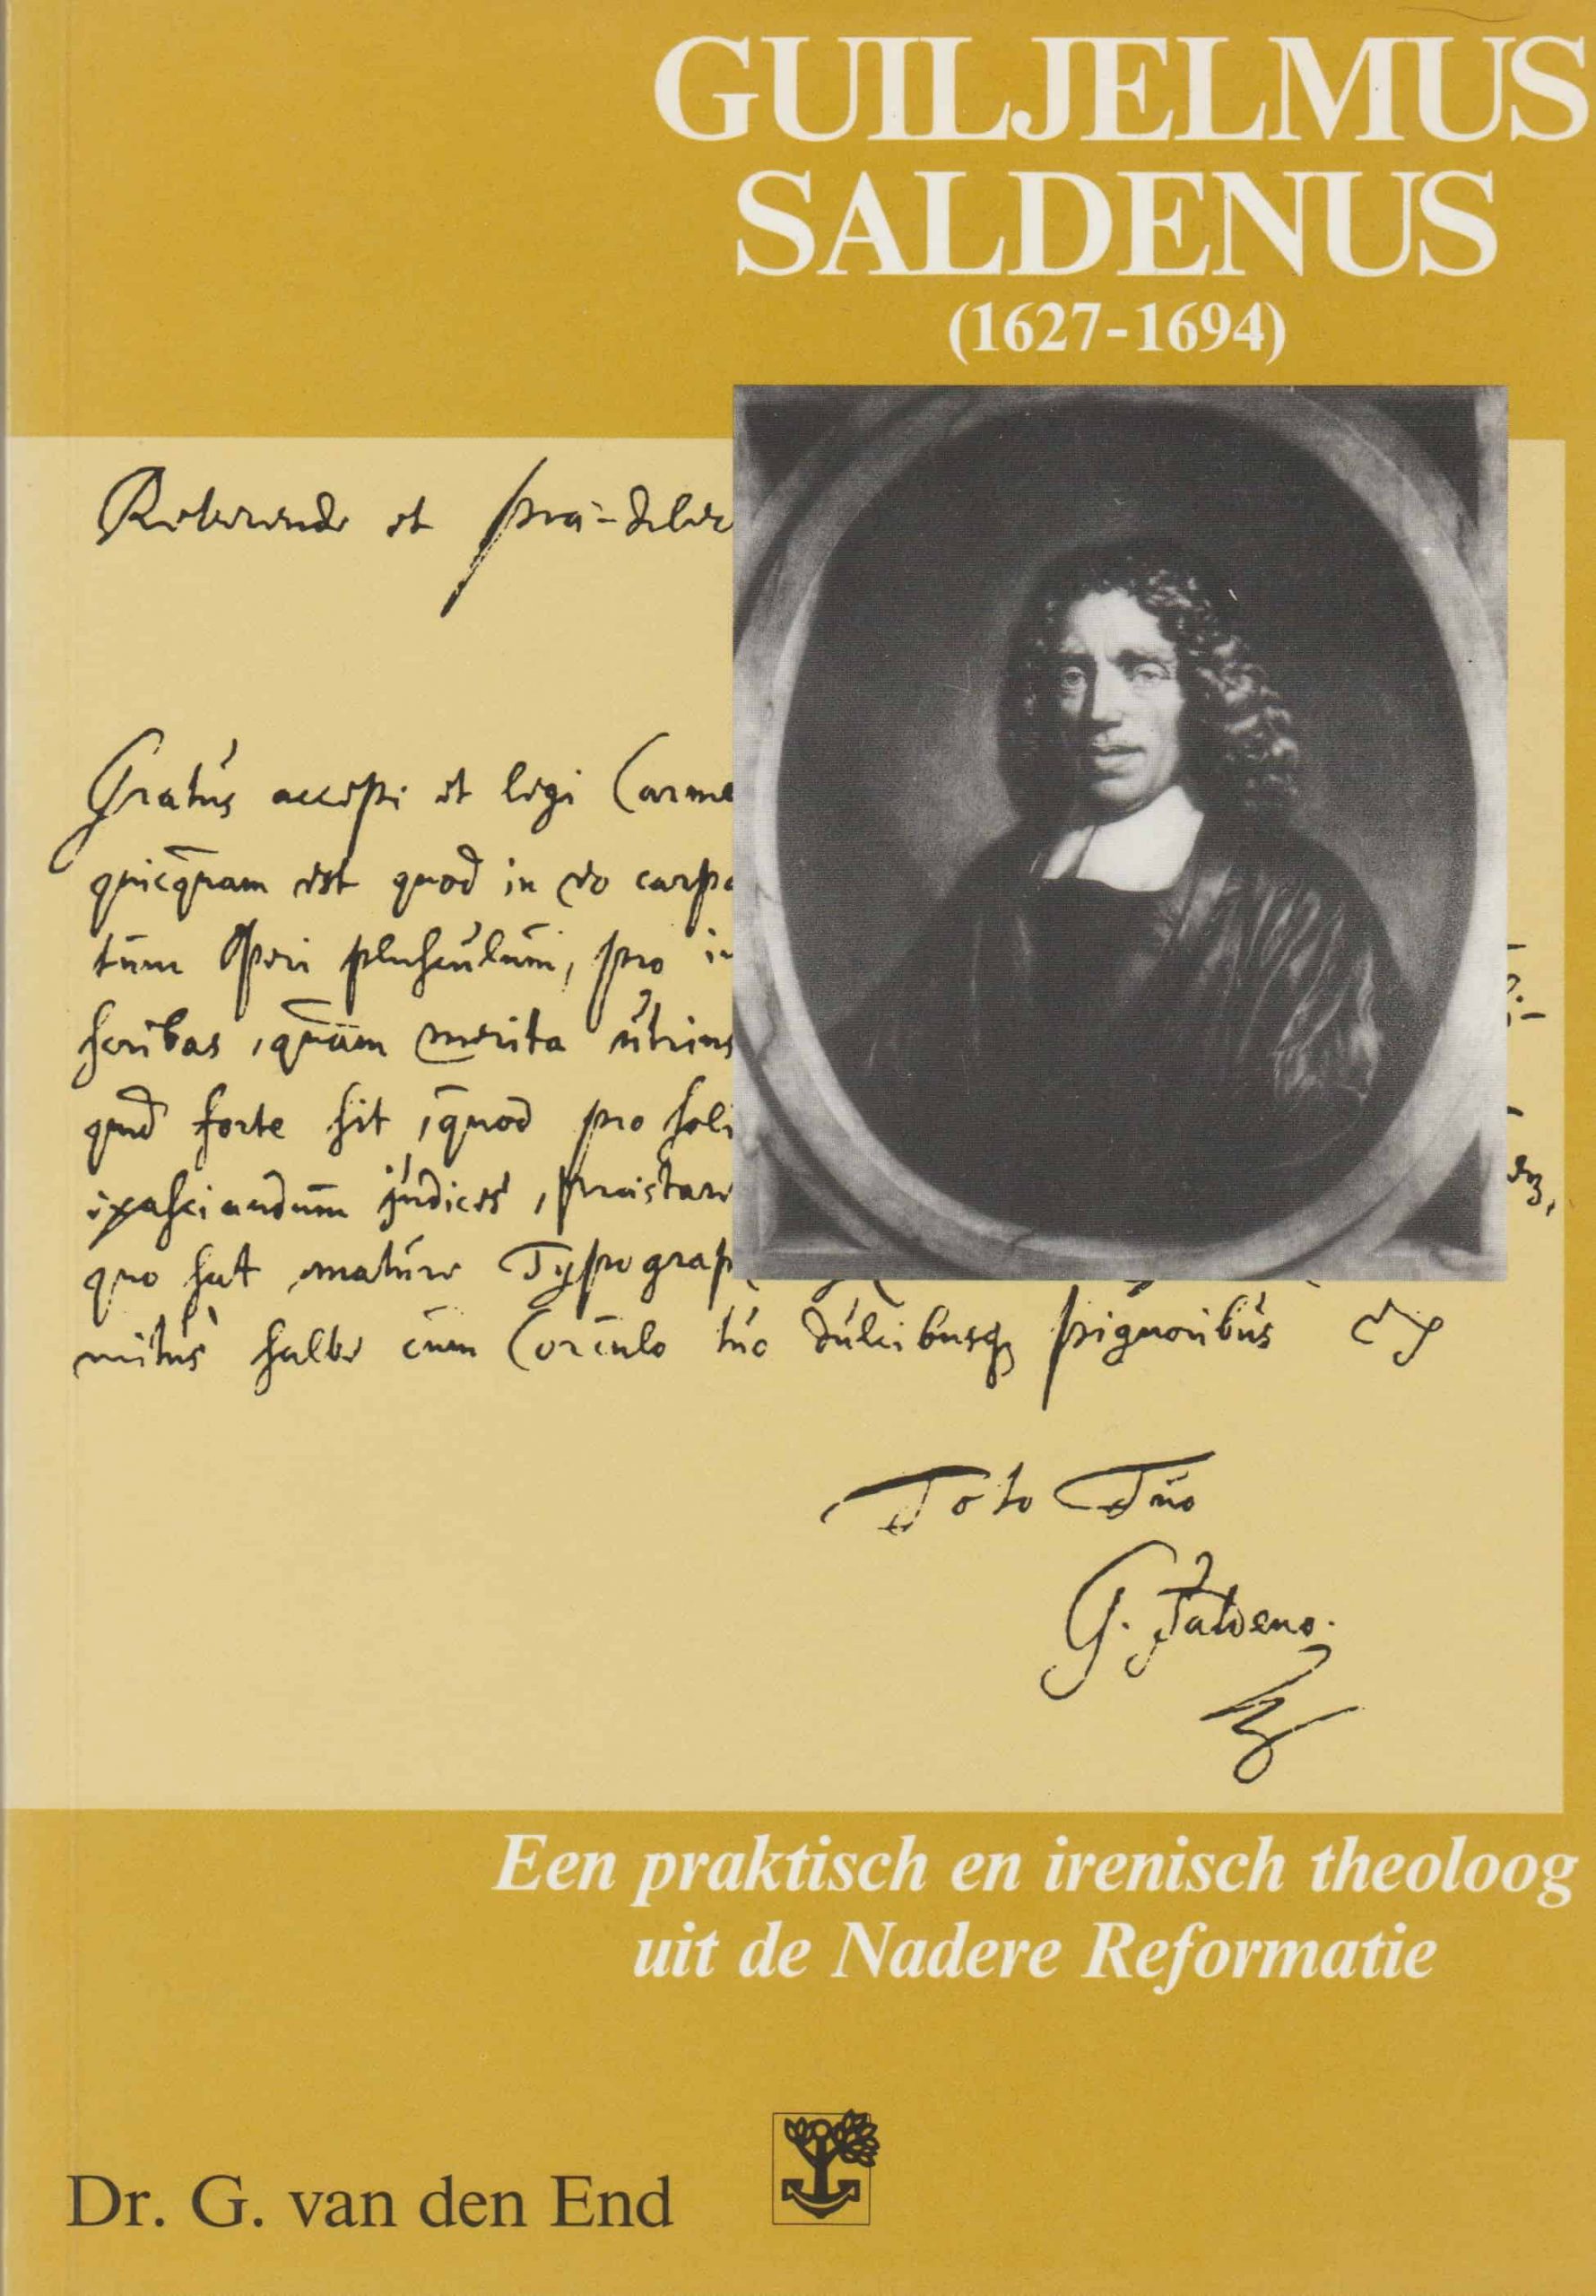 GUILJELMUS
SALDENUS
(1627-1694)
Reverende et præ-dilec
Gratus accepi et legi Carme
quicquam est quod in eo carpe
tum Operi plusculum, pro in
scribas, quam merita utrius
quid forte sit, quod pro soli
exasciandum judices, præstare
quo sat mature Typograp
nitus salve cum Corculo tuo dulcibusq pignoribus
Toto Tuo
G. Saldeno.
Een praktisch en irenisch theoloog
uit de Nadere Reformatie
Dr. G. van den End